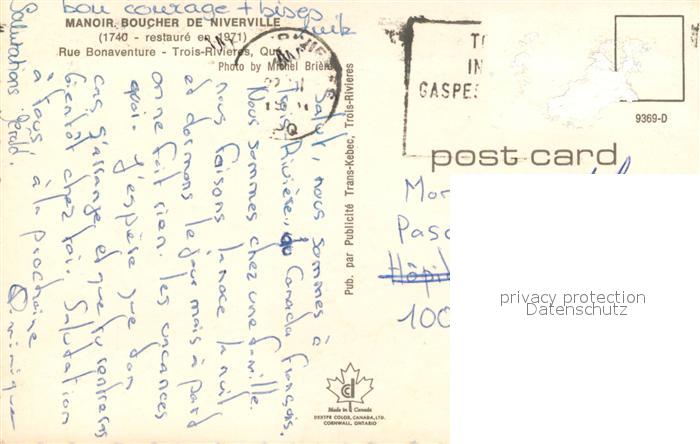 bon courage + bises
MANOIR BOUCHER DE NIVERVILLE
(1740 - restauré en 1971)
Rue Bonaventure - Trois-Rivières, Qué
Photo by Michel Brière
Salut, nous sommes à
Trois Rivières, au Canada français.
Nous sommes chez une famille.
nous faisons la noce la nuit
et dormons le jour mais à part
on ne fait rien. les vacances
quoi. J'espère que ton
cas s'arrange et que tu rentreras
bientôt chez toi. Salutation
à tous à la prochaine
Dominique
Salutations Gérald.
Pub. par Publicité Trans-Kebec, Trois-Rivières
TO
IN
GASPES
9369-D
post card
Mon
Pasc
Hôpit
100
privacy protection
Datenschutz
Made in Canada
DEXTER COLOR, CANADA, LTD.
CORNWALL, ONTARIO